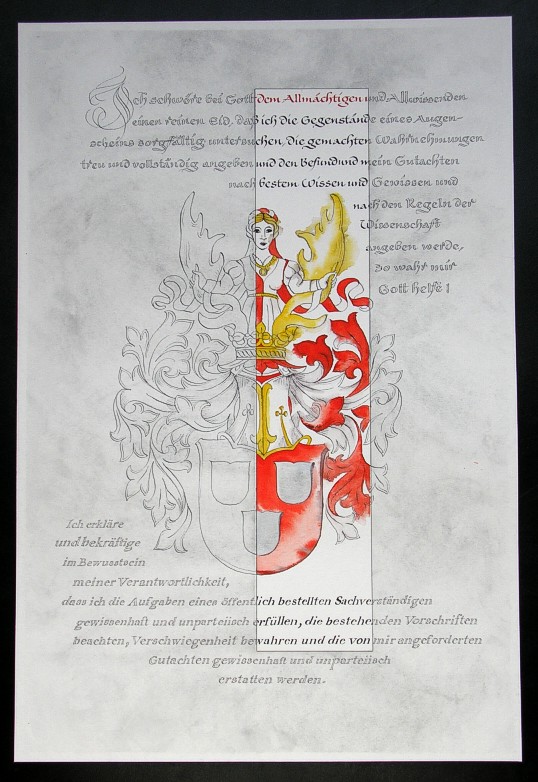 Ich schwöre bei Gott dem Allmächtigen und Allwissenden
einen reinen Eid, daß ich die Gegenstände eines Augen-
scheins sorgfältig untersuchen, die gemachten Wahrnehmungen
treu und vollständig angeben und den Befund und mein Gutachten
nach bestem Wissen und Gewissen und
nach den Regeln der
Wissenschaft
angeben werde,
so wahr mir
Gott helfe!
Ich erkläre
und bekräftige
im Bewusstsein
meiner Verantwortlichkeit,
dass ich die Aufgaben eines öffentlich bestellten Sachverständigen
gewissenhaft und unparteiisch erfüllen, die bestehenden Vorschriften
beachten, Verschwiegenheit bewahren und die von mir angeforderten
Gutachten gewissenhaft und unparteiisch
erstatten werden.